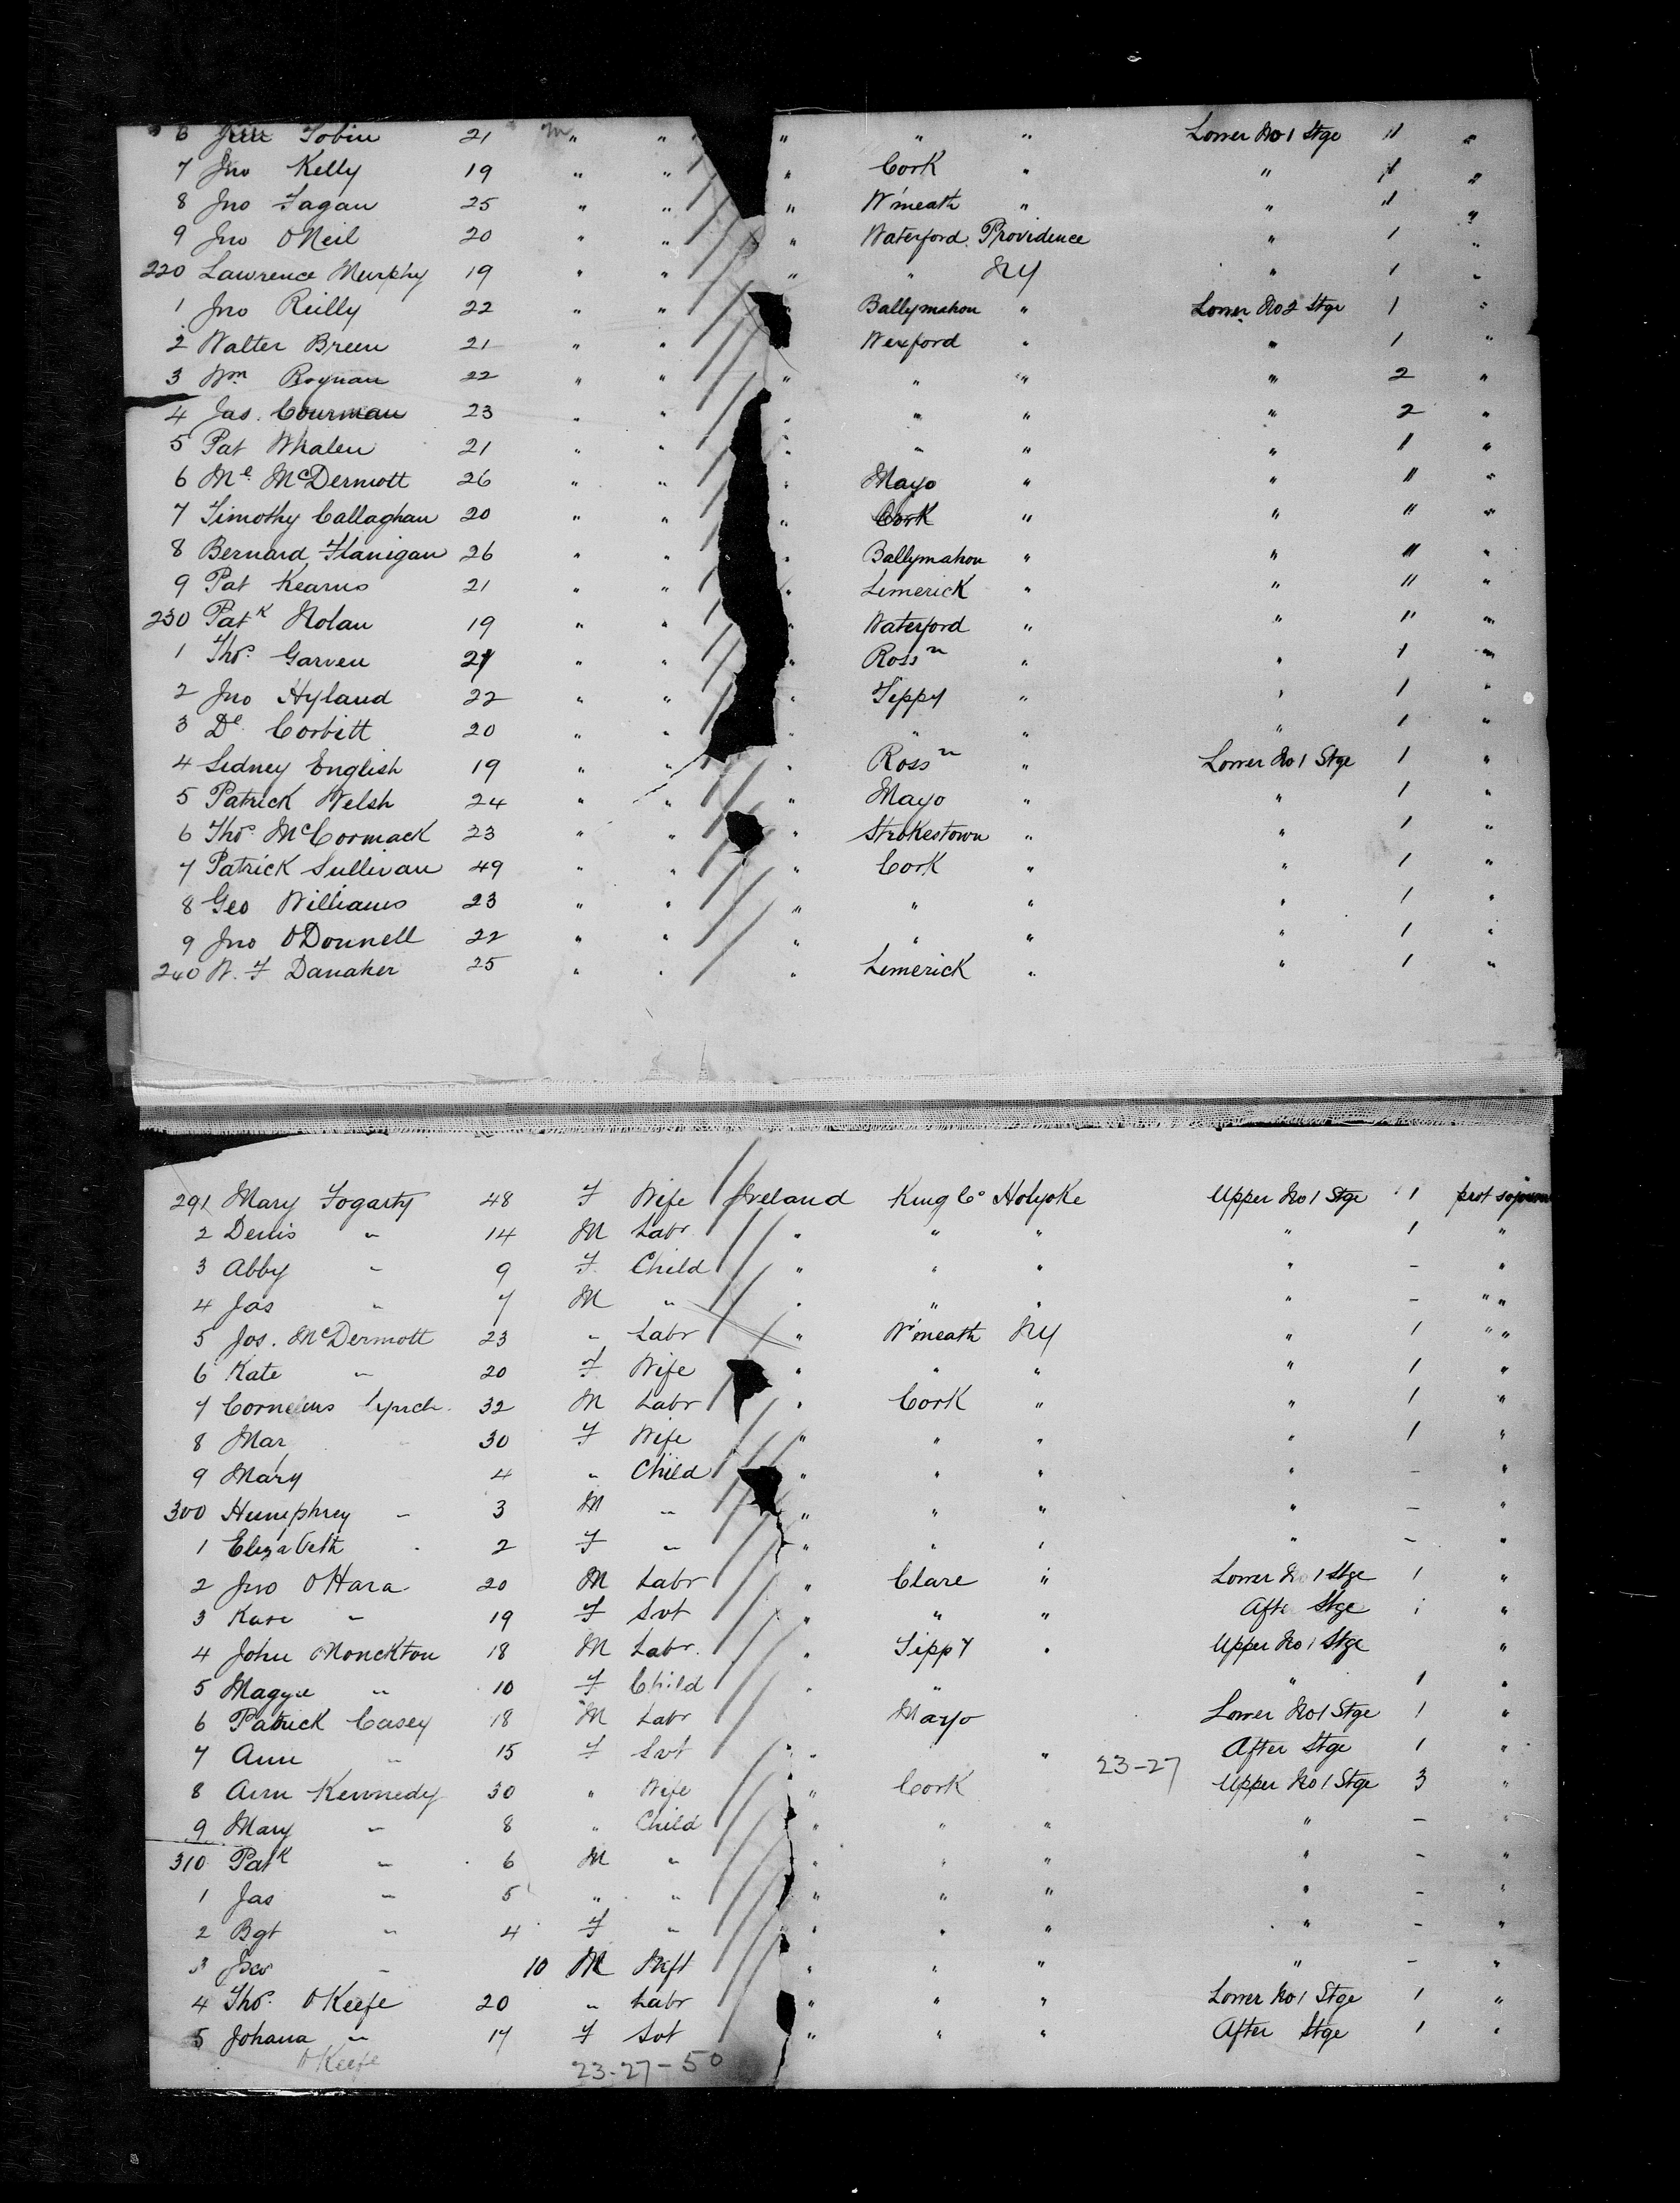 6 Tobin 21 m " " " " " Lower No 1 Stge 11 "
7 Jno Kelly 19 " " " Cork " " 11 "
8 Jno Fagan 25 " " " W'meath " " 11 "
9 Jno O'Neil 20 " " " Waterford Providence " 1 "
220 Lawrence Murphy 19 " " " " NY " 1 "
1 Jno Reilly 22 " " Ballymahon " Lower No 2 Stge 1 "
2 Walter Breen 21 " " Wexford " " 1 "
3 Wm Roynan 22 " " " " " " 2 "
4 Jas. Courman 23 " " " " " " 2 "
5 Pat Whalen 21 " " " " " " 11 "
6 Ml McDermott 26 " " " Mayo " " 11 "
7 Timothy Callaghan 20 " " " Cork " " 11 "
8 Bernard Flanigan 26 " " " Ballymahon " " 11 "
9 Pat Kearns 21 " " " Limerick " " 11 "
230 Patk Nolan 19 " " " Waterford " " 11 "
1 Thos. Garven 21 " " " Rossn " " 1 "
2 Jno Hyland 22 " " " Tippy " " 1 "
3 Dl. Corbitt 20 " " " " " " 1 "
4 Sidney English 19 " " " Rossn " Lower No 1 Stge 1 "
5 Patrick Welsh 24 " " " Mayo " " 1 "
6 Thos. McCormack 23 " " " Strokestown " " 1 "
7 Patrick Sullivan 49 " " " Cork " " 1 "
8 Geo Williams 23 " " " " " " 1 "
9 Jno O'Donnell 22 " " " " " " 1 "
240 W. F Danaher 25 " " " Limerick " " 1 "
291 Mary Fogarty 48 F Wife Ireland King Co Holyoke Upper No 1 Stge 1 prot sojourn
2 Denis " 14 M Labr " " " " 1 "
3 Abby " 9 F Child " " " " - "
4 Jas " 7 M " " " " " - " "
5 Jos. McDermott 23 " Labr " W'meath NY " 1 " "
6 Kate " 20 F Wife " " " " 1 "
7 Cornelius Lynch 32 M Labr " Cork " " 1 "
8 Mar 30 F Wife " " " " 1 "
9 Mary 4 " Child " " " " - "
300 Humphrey " 3 M " " " " " - "
1 Elizabeth " 2 F " " " " " - "
2 Jno O'Hara 20 M Labr " Clare " Lower No 1 Stge 1 "
3 " 19 F Svt " " " Afte Stge 1 "
4 John Monckton 18 M Labr. " Tippy " Upper No 1 Stge "
5 Maggie " 10 F Child " " " 1 "
6 Patrick Casey 18 M Labr Mayo Lower No 1 Stge 1 "
7 Ann " 15 F Svt " " 23-27 After Stge 1 "
8 Ann Kennedy 30 " Wife " Cork Upper No 1 Stge 3 "
9 Mary " 8 " Child " " " " - "
310 Patk " 6 M " " " " " - "
1 Jas " 5 " " " " " " - "
2 Bgt " 4 F " " " " " - "
3 " 10 M Inft " " " " - "
4 Thos. O'Keefe 20 " Labr " " " Lower No 1 Stge 1 "
5 Johana " 17 F Svt " " " After Stge 1 "
O'Keefe 23-27-50